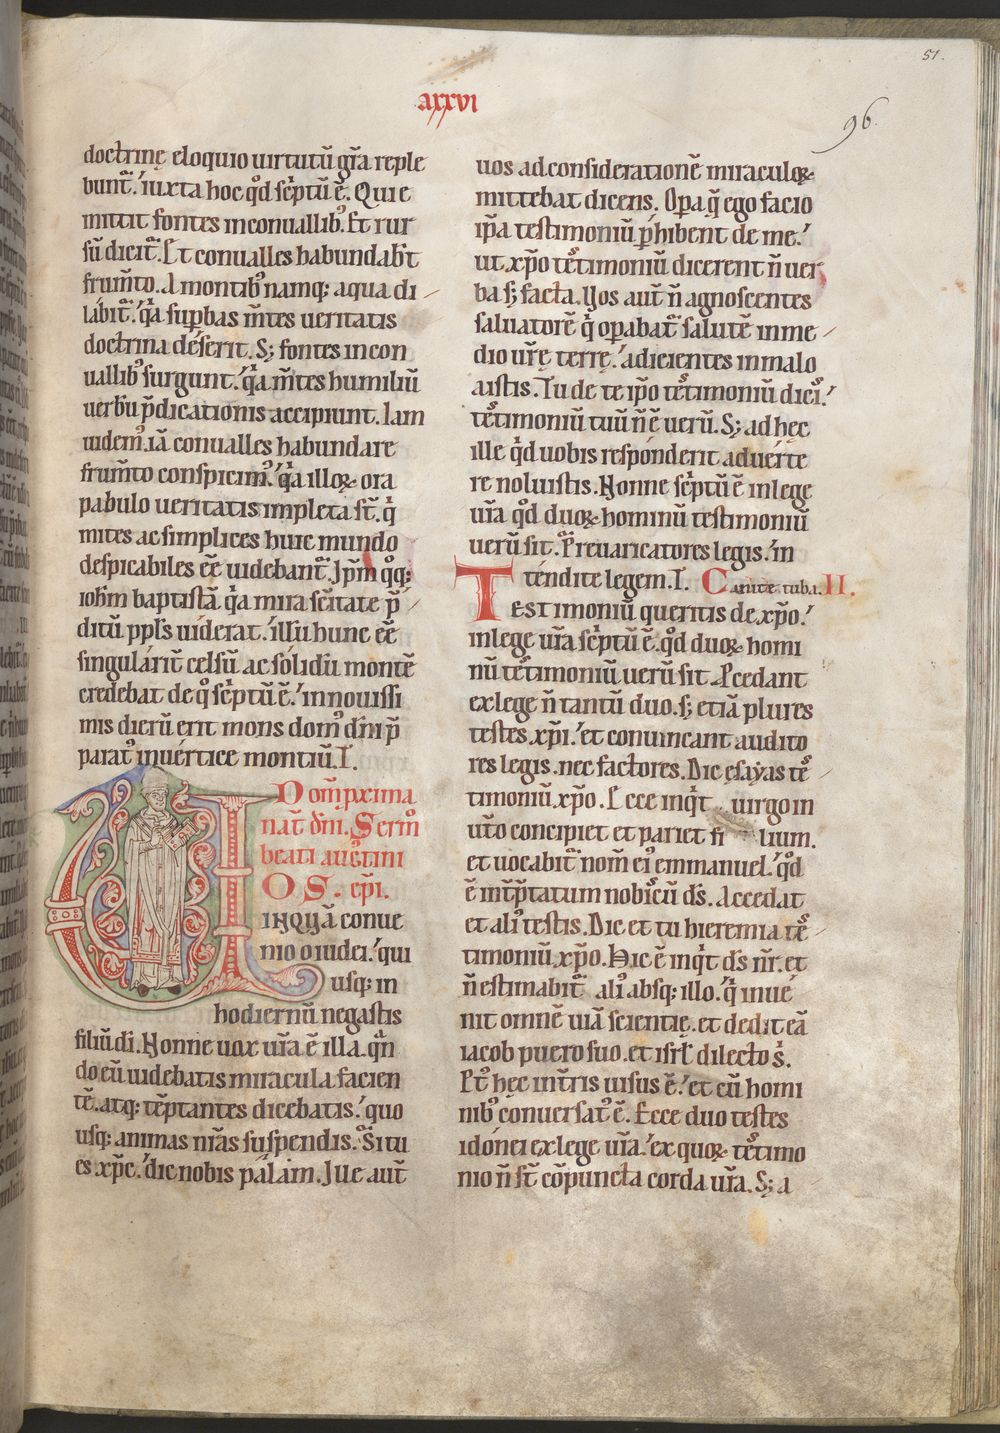 51.
axxvi
96.
doctrinę eloquio uirtutū gr̄a reple
bunt᷑. iuxta hoc qd̄ scͥptū ē. Qui e
mittit fontes inconuallibꝰ. Et rur
sū dicit᷑. Et conualles habundab̄t
frum̄to. A montibꝰ namq; aqua di
lábit᷑. qͥa supbas m̄tes ueritatis
doctrina déserit. S; fontes incon
uallibꝰ surgunt. qͥa m̄tes humiliū
uerbū p̄dicationis accipiunt. Iam
uidemꝰ. iā conualles habundare
frum̄to conspicimꝰ. qͥa illoꝝ ora
pabulo ueritatis impleta st̄. qͥ
mites ac simplices huic mundo
despicabiles eē uidebant᷑. Ip̄m qͦq;
ioh̄m baptistā. qͥa mira sc̄itate p̄
ditū ppl's uiderat. illū hunc eē
singulárit̄ celsū. ac sólidū montē
credebat de qͦ scͥptū ē. in nouissi
mis dierū erit mons domꝰ dn̄i p̄
paratꝰ in uértice montiū. I.
Dom̄. pxima
nat̄ dn̄i. Sermͦ
beati auḡtini
OS. ep̄i.
INQUĀ conue
nio o iudei. qui
usq; in
hodiernū negastis
filiū di. Nonne uox ur̄a ē illa. qn̄
do eū uidebatis miracula facien
tē. atq; tēptantes dicebatis. quo
usq; animas nr̄as suspendis. Si tu
es xp̄c. dic nobis pálam. Iue aut̄
uos ad considerationē miraculoꝝ
mittebat dicens. Opa q̄ ego facio
ip̄a testimoniū phibent de me.
ut xp̄o tēͭtimoniū dicerent n̄ uer
ba s; facta. Uos aut̄ n̄ agnoscentes
saluatorē qͥ opabat᷑ salutē in me
dio ur̄ę terrę. adicientes in malo
aistis. Tu de te ip̄o tēͭtimoniū dici᷒.
tēͭtimoniū tuū n̄ ē uerū. S; ad hęc
ille qͥd uobis respónderit aduérte
re noluistis. Nonne scͥptū ē in lege
ur̄a qd̄ duoꝝ hominū testimoniū
uerū sit. P̄reuaricatores legis. in
téndite legem. I. Canite tuba. II.
Testimoniū queritis de xp̄o.
in lege ur̄a scͥptū ē. qd̄ duoꝝ homi
nū tēͭtimoniū uerū sit. Pcedant
ex lege n̄ tantū duo. s; etiā plures
testes. xp̄i. et conuincant audito
res legis. nec factores. Dic esayas tē
timoniū. xp̄o. Ecce inqͥt uirgo in
ut̄o concipiet et pariet fi lium.
et uocabit᷑ nom̄ eiꝰ emmanuel. qd̄
ē int̄p̄tatum nobiscū ds̄. Accedat
et aliꝰ testis. Dic et tu hieremia tē
timoniū. xp̄o. Hic ē inqͥt ds̄ nr̄. et
n̄ estimabit᷑ aliꝰ absq; illo. qͥ inue
nit omnē uiā scientię. et dedit eā
iacob puero suo. et isrl̄ dilecto s᷒.
Ptͦ hec int̄ris uisus ē. et cū homi
nibꝰ cónuersatꝰ ē. Ecce duo testes
idónei ex lege ur̄a. ex quoꝝ tēͭtimo
nio n̄ st̄ cōpuncta corda ur̄a. S; a